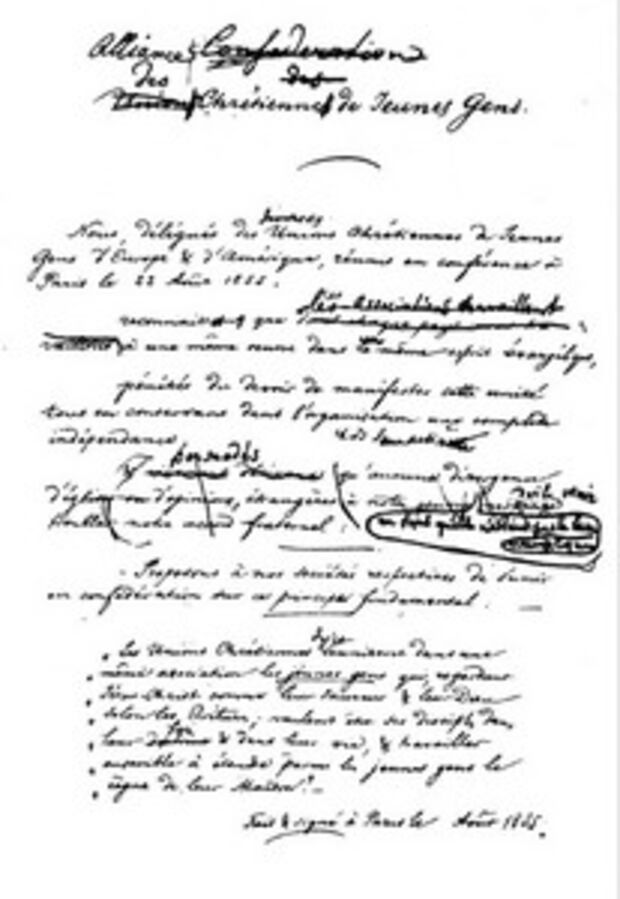 Alliance Confédération
des des
Unions Chrétiennes de Jeunes Gens.
diverses
Nous, délégués des Unions Chrétiennes de Jeunes
Gens d'Europe & d'Amérique, réunis en conférence à
Paris le 22 Août 1855.
les Associations travaillent
reconnaissant que
à une même œuvre dans le même esprit évangélique,
pénétrés du devoir de manifester cette unité
tout en conservant dans l'organisation une complète
indépendance
persuadés
qu'aucune divergence
d'église ou d'opinion, étrangères à
troubler notre accord fraternel :
Proposons à nos sociétés respectives de s'unir
en confédération sur ce principe fondamental.
" Les Unions Chrétiennes réunissent dans une
" même association les jeunes gens qui, regardant
" Jésus-Christ comme leur Sauveur & leur Dieu
" selon les Écritures, veulent être ses disciples dans
" leur foi & dans leur vie, & travailler
" ensemble à étendre parmi les jeunes gens le
" règne de leur Maître." –
Fait & signé à Paris le Août 1855.